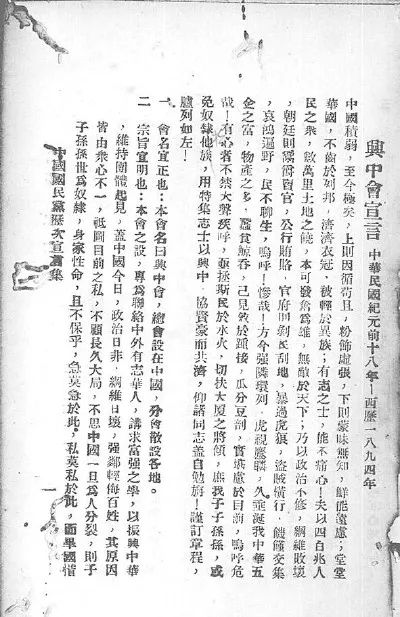 興中會宣言 中華民國紀元前十八年—西歷一八九四年
中國積弱，至今極矣，上則因循苟且，粉飾虛張，下則蒙昧無知，鮮能遠慮；堂堂
華國，不齒於列邦，濟濟衣冠，被輕於異族；有志之士，能不痛心！夫以四百兆人
民之衆，數萬里土地之饒，本可發奮爲雄，無敵於天下；乃以政治不修，綱維敗壞
，朝廷則鬻爵賣官，公行賄賂，官府則剝民刮地，暴過虎狼，盜賊橫行，饑饉交集
，哀鴻遍野，民不聊生，嗚呼！慘哉！方今強隣環列，虎視鷹瞵，久垂涎我中華五
金之富，物產之多，蠶食鯨吞，已見效於踵接，瓜分豆剖，實堪慮於目前，嗚呼危
哉！有心者不禁大聲疾呼，亟拯斯民於水火，切扶大廈之將傾，庶我子子孫孫，或
免奴隸他族，用特集志士以興中，協賢豪而共濟，仰諸同志盍自勉旃！謹訂章程，
臚列如左！
一、會名宜正也：本會名曰興中會，總會設在中國，分會散設各地。
二、宗旨宜明也：本會之設，專爲聯絡中外有志華人，講求富強之學，以振興中華
，維持團體起見，蓋中國今日，政治日非，綱維日壞，強鄰輕侮百姓，其原因
皆由衆心不一，祇圖目前之私，不顧長久大局，不思中國一旦爲人分裂，則子
子孫孫世爲奴隸，身家性命，且不保乎，急莫急於此，私莫私於此，而舉國憒
中國國民黨歷次宣言集
一